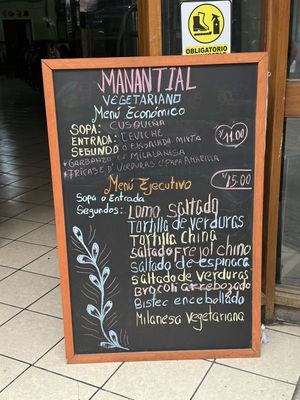 OBLIGATORIO
MANANTIAL
VEGETARIANO
Menú Económico
SOPA: CUSQUINA
ENTRADA: CEVICHE
SEGUNDO O ENSALADA MIXTA
S/11.00
* GARBANZO C/ MILANESA
* FRICASE D' VERDURAS C/PAPA AMARILLA
Menú Ejecutivo
S/15.00
Sopa o Entrada
Segundos: Lomo Saltado
Tortilla de verduras
Tortilla China
Saltado Frejol chino
Saltado de espinaca
Saltado de verduras
Brocoli arrebozado
Bistec encebollado
Milanesa Vegetariana